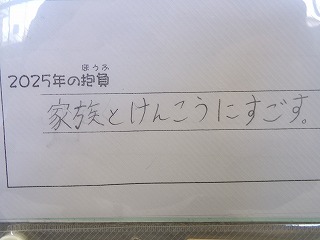 ほうふ
2025年の抱負
家族とけんこうにすごす。